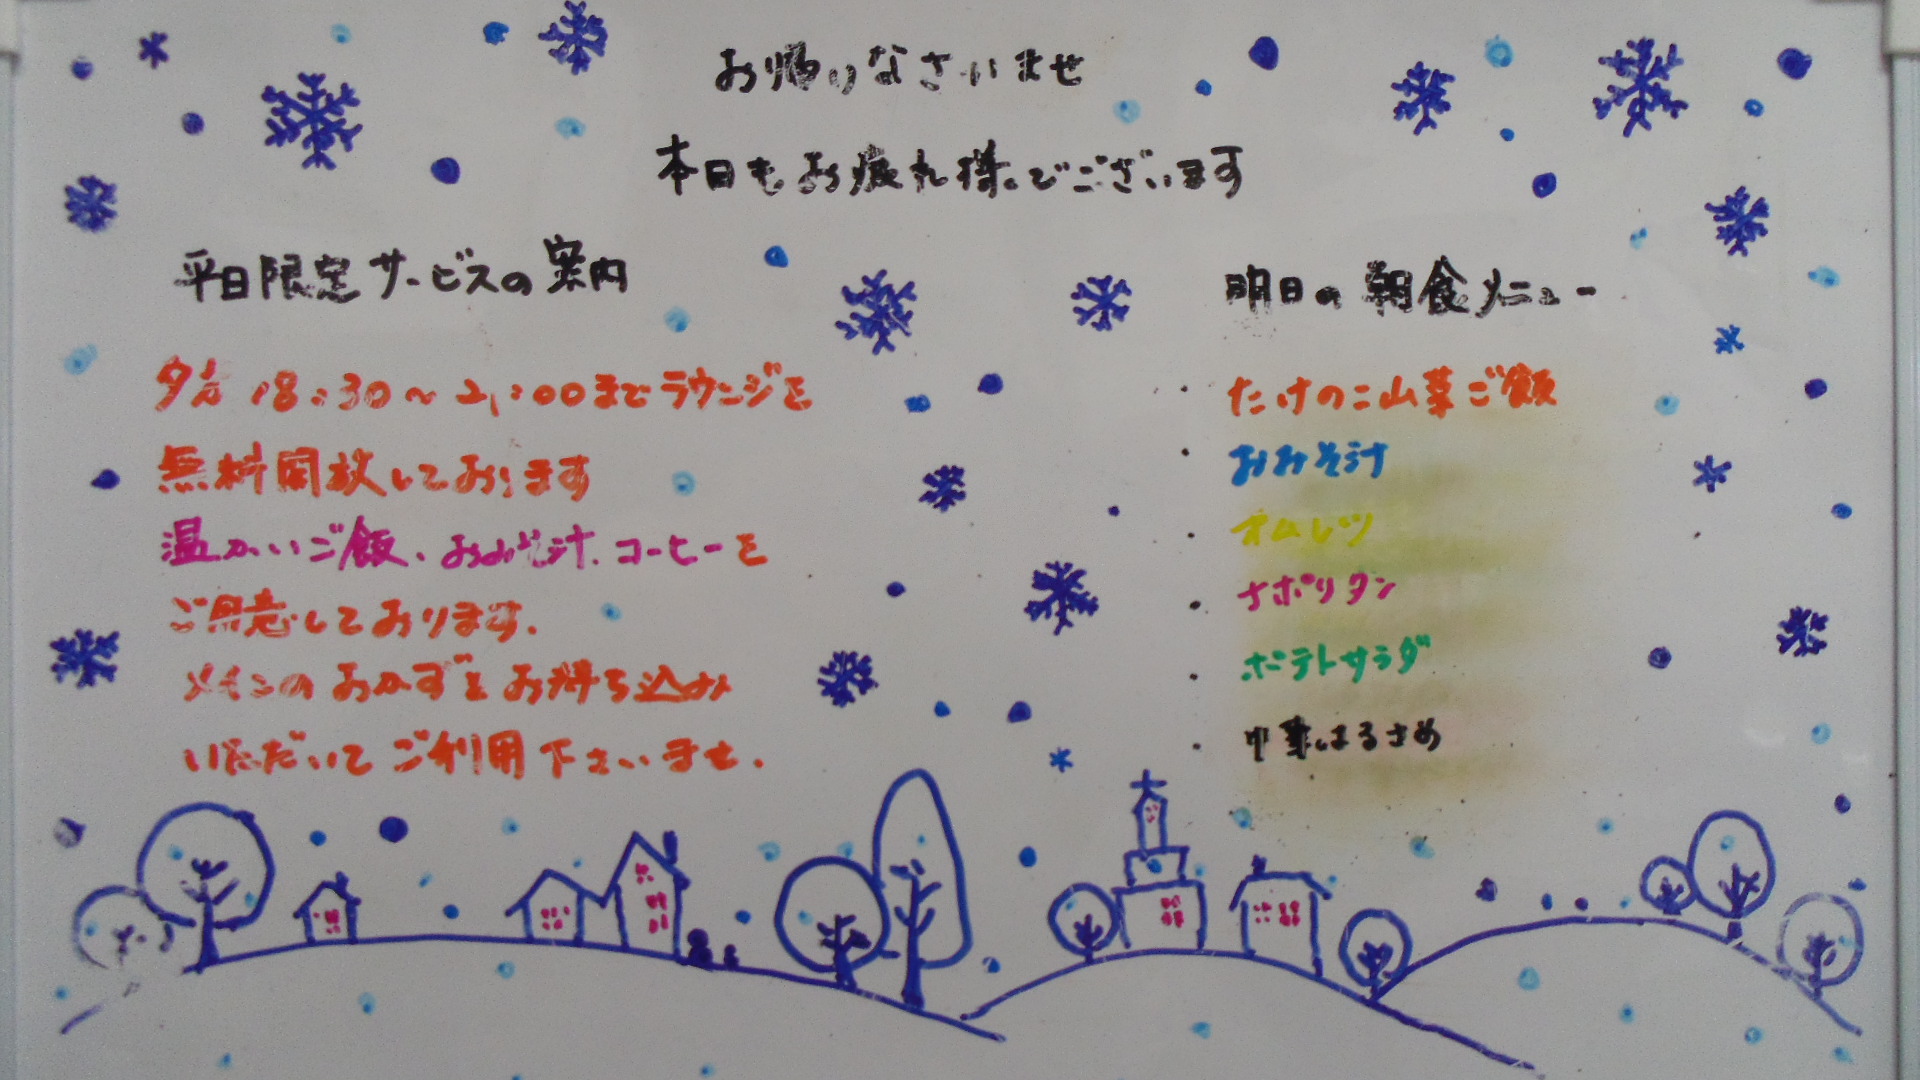 お帰りなさいませ
本日もお疲れ様でございます
平日限定サービスの案内
夕方 18:30～21:00までラウンジを
無料開放しております
温かいご飯、おみそ汁、コーヒーを
ご用意しております.
メインのおかずをお持ち込み
いただいてご利用下さいませ.
明日の朝食メニュー
・たけのこ山菜ご飯
・おみそ汁
・オムレツ
・ナポリタン
・ポテトサラダ
・中華はるさめ